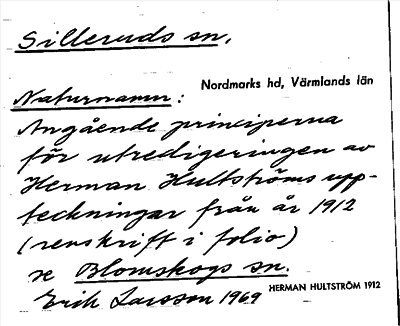 Silleruds sn.
Nordmarks hd, Värmlands län
Naturnamn:
Angående principerna
för utredigeringen av
Herman Hultströms upp-
teckningar från år 1912
(renskrift i folio)
se Blomskogs sn.
Erik Larsson 1969
HERMAN HULTSTRÖM 1912